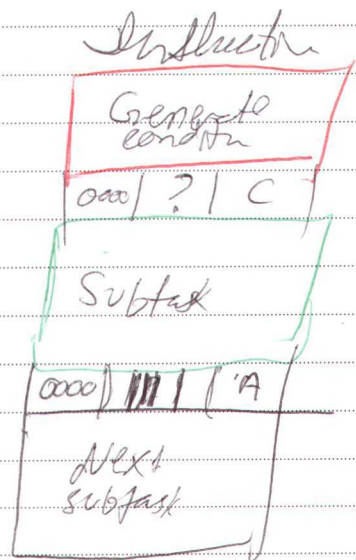 Instruction
Generate
condtn
0000 | ? | C
Subtask
0000 | 1111 | 'A
Next
subtask